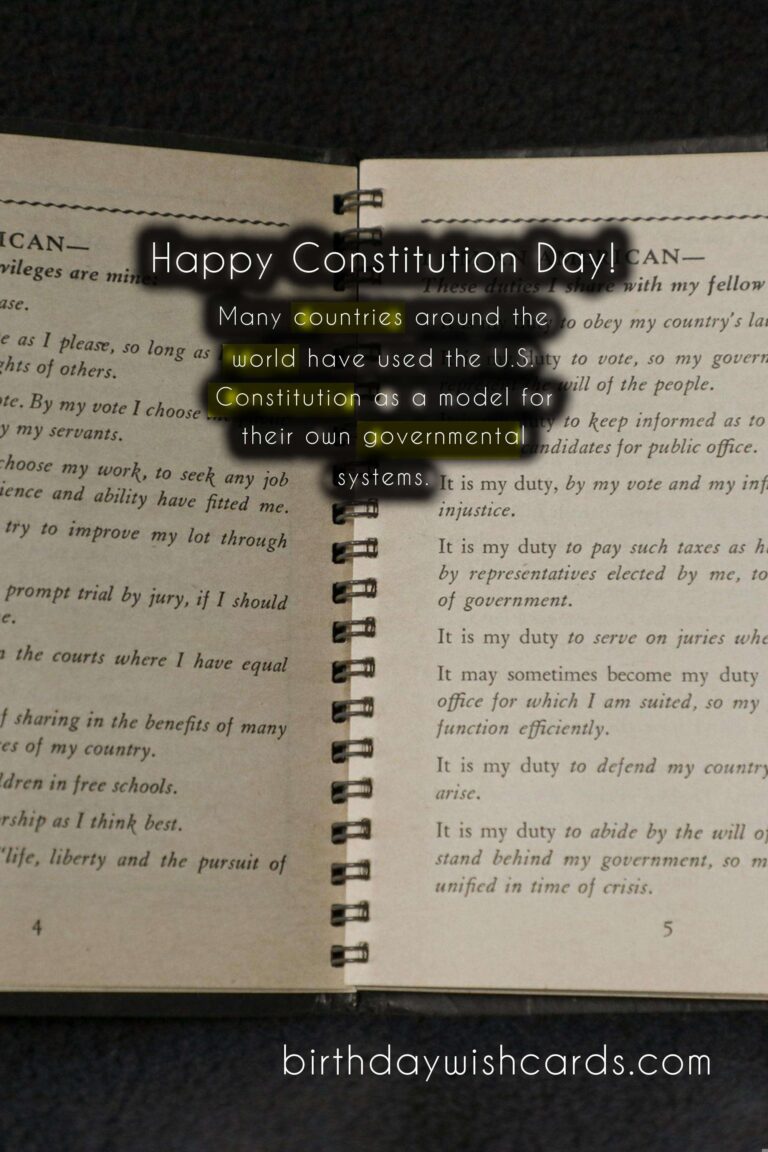 Happy Constitution Day!
Many countries around the
world have used the U.S.
Constitution as a model for
their own governmental
systems.
ICAN—
vileges are mine:
ase.
e as I please, so long as
ghts of others.
ote. By my vote I choose
y my servants.
choose my work, to seek any job
ience and ability have fitted me.
try to improve my lot through
prompt trial by jury, if I should
e.
n the courts where I have equal
f sharing in the benefits of many
es of my country.
ldren in free schools.
rship as I think best.
"life, liberty and the pursuit of
4
ICAN—
These duties I share with my fellow
to obey my country's la
duty to vote, so my govern
represent the will of the people.
duty to keep informed as to
candidates for public office.
It is my duty, by my vote and my inf
injustice.
It is my duty to pay such taxes as h
by representatives elected by me, to
of government.
It is my duty to serve on juries whe
It may sometimes become my duty
office for which I am suited, so my
function efficiently.
It is my duty to defend my country
arise.
It is my duty to abide by the will of
stand behind my government, so m
unified in time of crisis.
5
birthdaywishcards.com